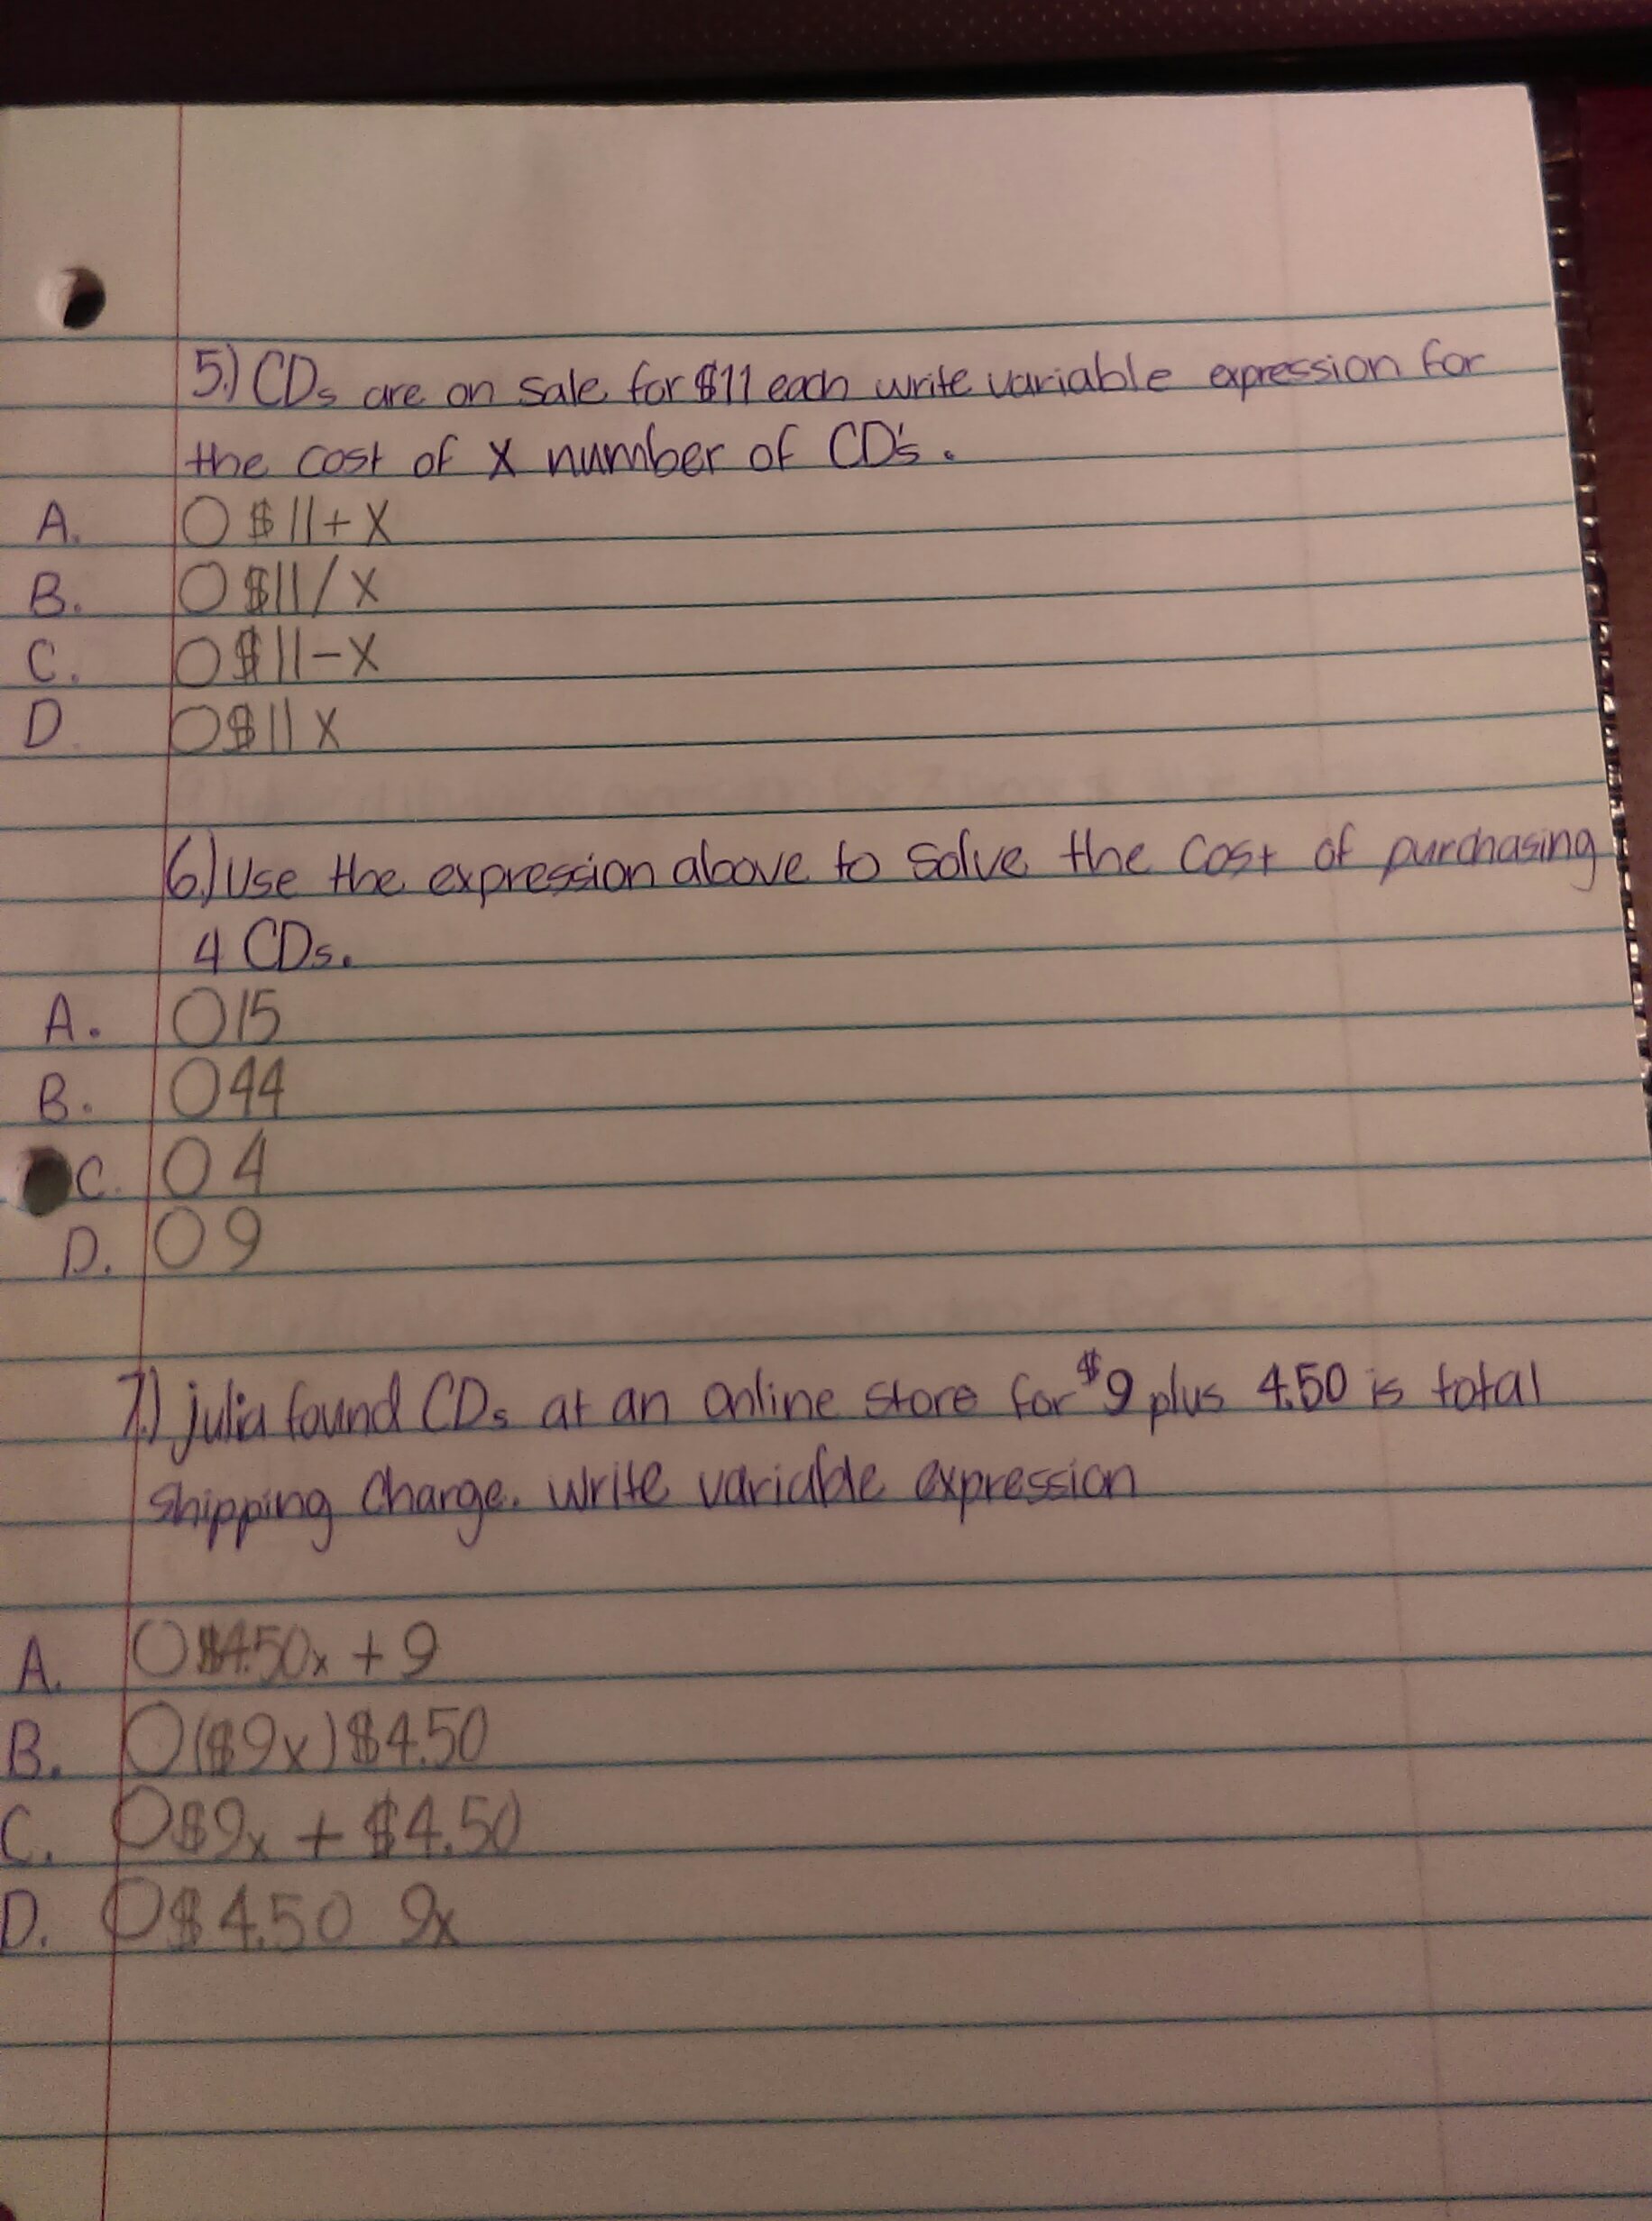 5.) CDs are on sale for $11 each write variable expression for
the cost of x number of CD's.
A. O $11+x
B. O $11/x
C. O $11-x
D. O $11x
6.) Use the expression above to solve the cost of purchasing
4 CDs.
A. O 15
B. O 44
C. O 4
D. O 9
7.) julia found CDs at an online store for $9 plus 4.50 is total
shipping charge. write variable expression
A. O $4.50x + 9
B. O ($9x) $4.50
C. O $9x + $4.50
D. O $4.50 9x